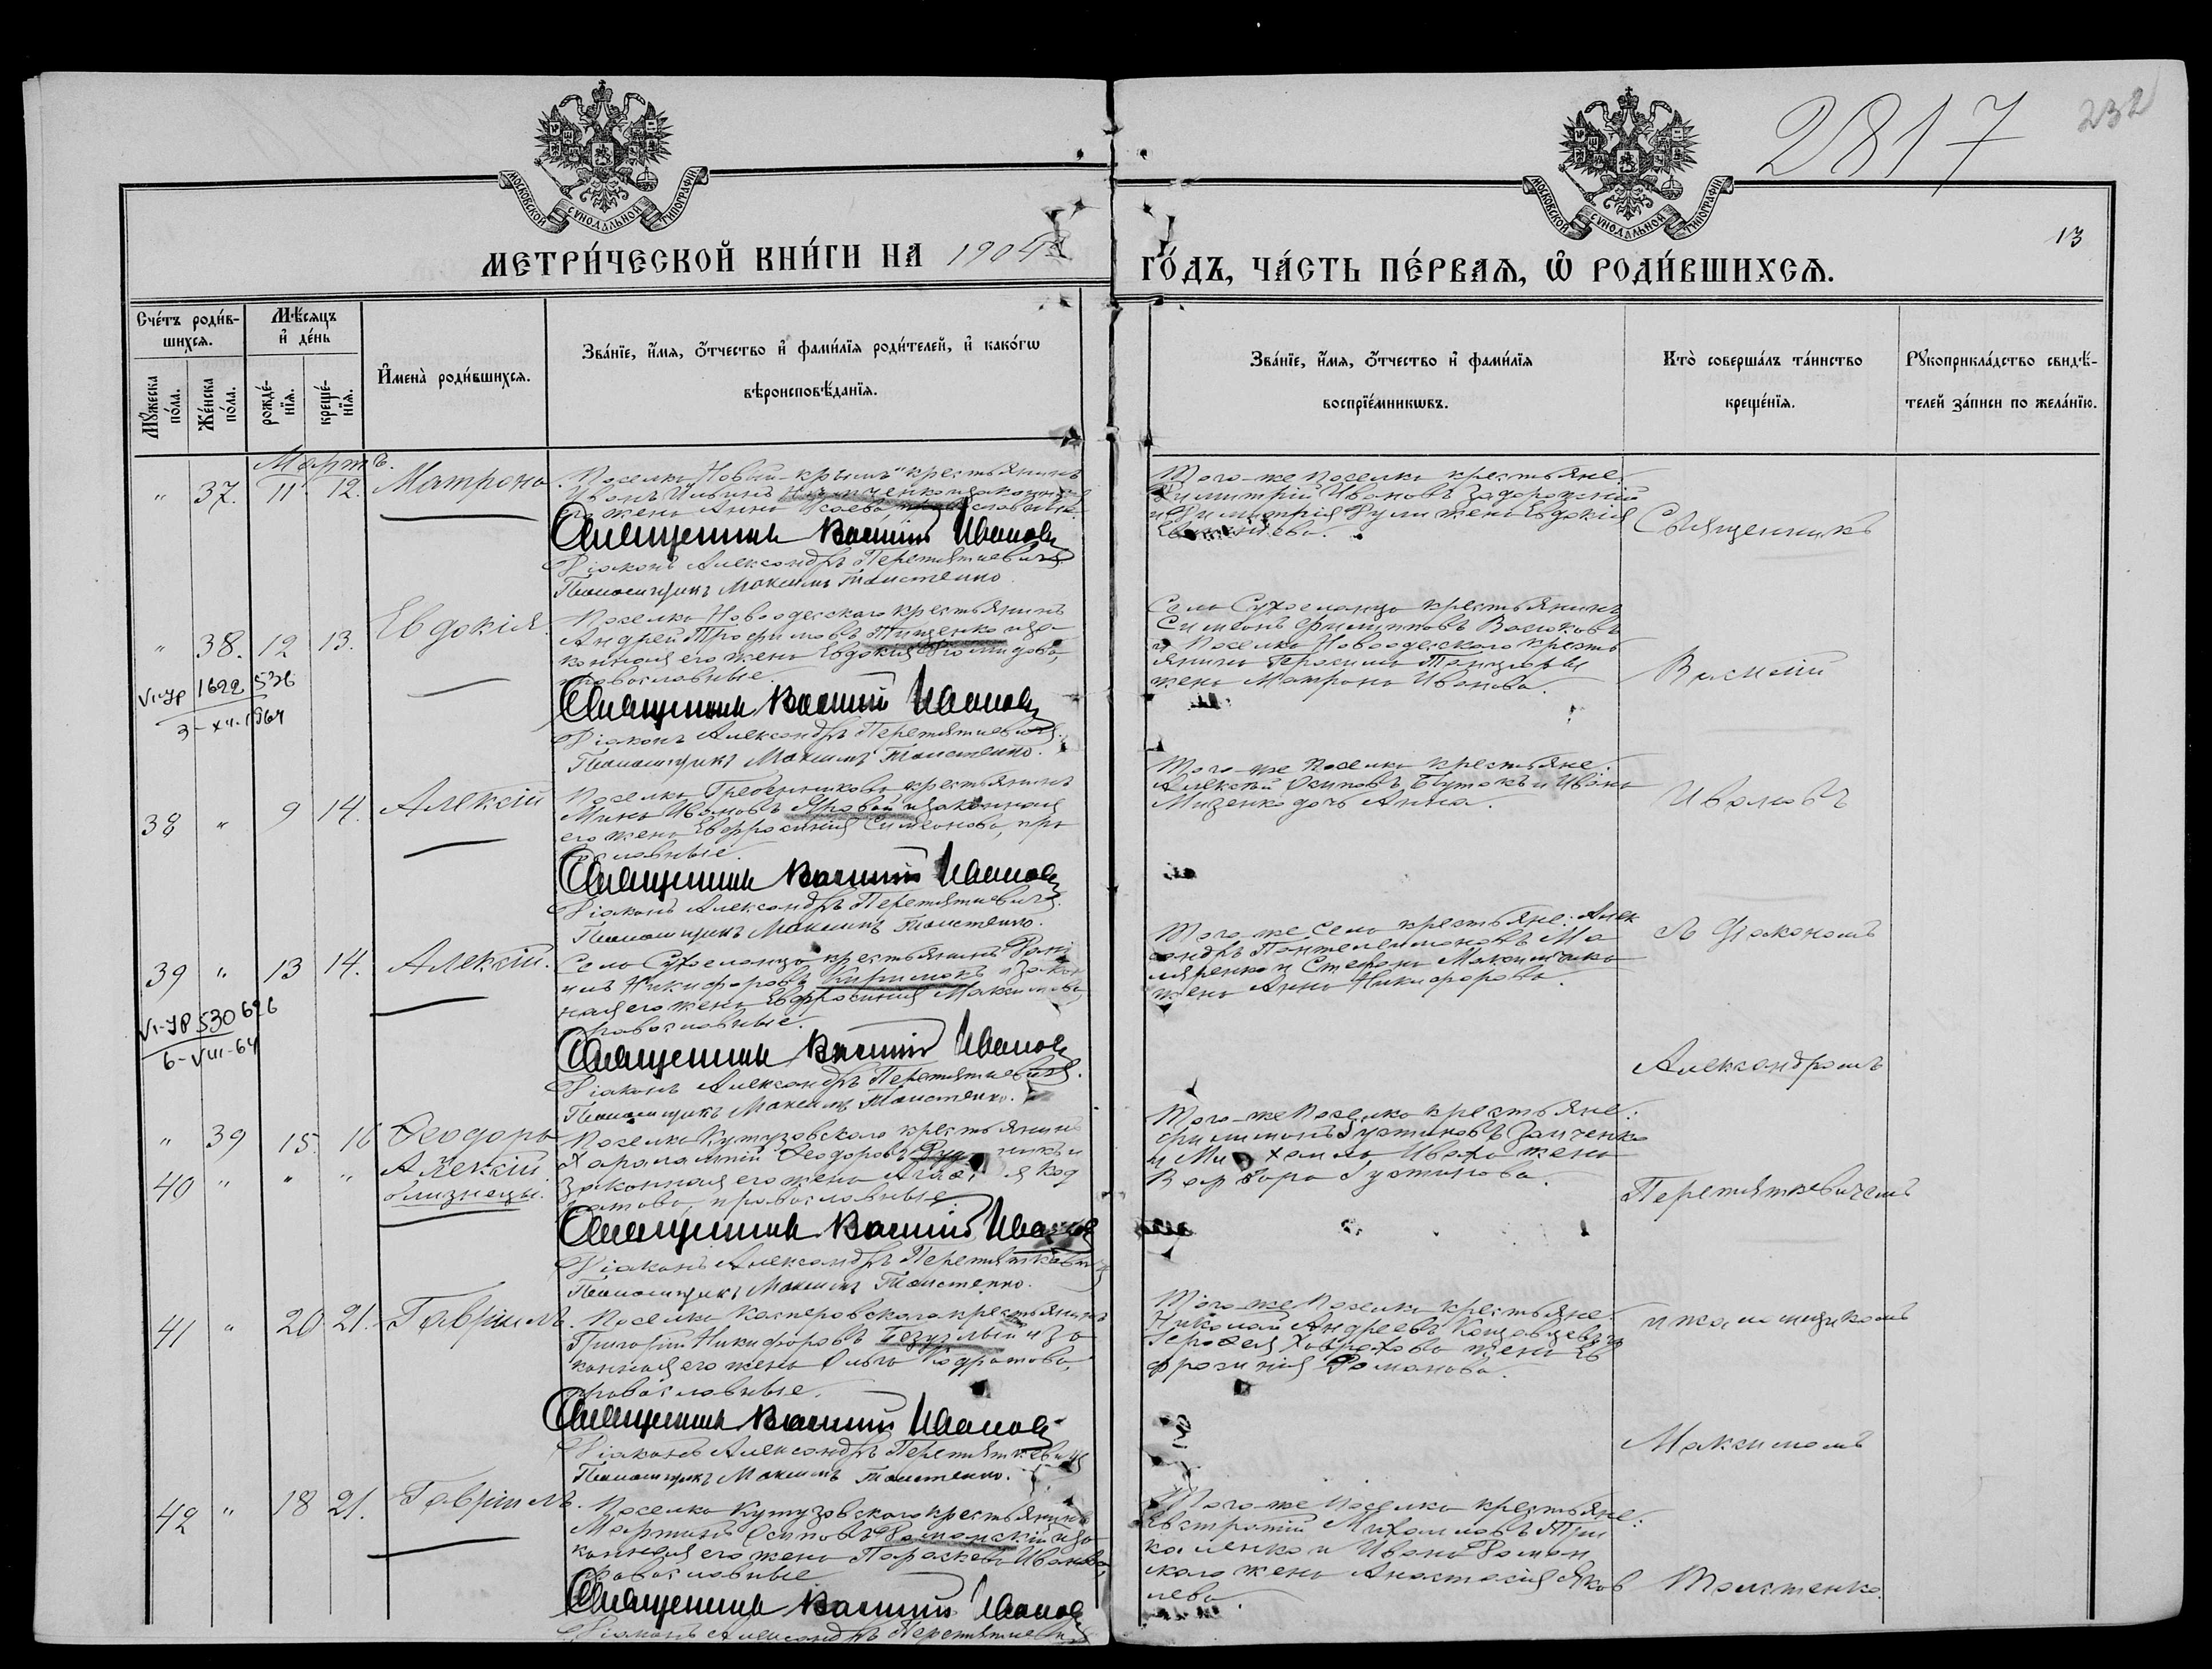 2817
232
МОСКОВСКОЙ СУНОДАЛЬНОЙ ТИПОГРАФІИ
МОСКОВСКОЙ СУНОДАЛЬНОЙ ТИПОГРАФІИ
13
МЕТРИ́ЧЕСКОЙ КНИ́ГИ НА 1904й
ГО́ДЪ, ЧА́СТЬ ПЕ́РВАѦ, Ѽ РОДИ́ВШИХСѦ.
Сче́тъ роди́в-
шихсѧ.
Мꙋ́жеска по́ла.
Же́нска по́ла.
Мѣ́сѧцъ
и҆ де́нь
рожде́-
нїѧ.
креще́-
нїѧ.
И҆мена̀ роди́вшихсѧ.
Зва́нїе, и҆́мѧ, ѻ҆́тчество и҆ фами́лїѧ роди́телей, и҆ како́гѡ
вѣроисповѣ́данїѧ.
Зва́нїе, и҆́мѧ, ѻ҆́тчество и҆ фами́лїѧ
воспрїе́мникѡвъ.
Кто̀ соверша́лъ та́инство
креще́нїѧ.
Рꙋкоприкла́дство свидѣ́-
телей за́писи по жела́нїю.
Мартъ.
" 37. 11 12. Матрона
Поселка Новый-Крымъ крестьянинъ
Иванъ Ильинъ и законная
его жена Анна
Священникъ Василій Ивановъ
Діаконъ Александръ Перетяткевичъ
Псаломщикъ Максимъ Толстенко
Того-же поселка крестьяне:
Димитрій Ивановъ Задорожній
и Димитрія жена Евдокія
Священникъ
" 38. 12 13. Евдокія
VI-ур 1622 536
3-XII-1964
Поселка Новоодесского крестьянинъ
Андрей Трофимовъ Тищенко и за-
конная его жена Евдокія
православные.
Священникъ Василій Ивановъ
Діаконъ Александръ Перетяткевичъ.
Псаломщикъ Максимъ Толстенко.
Села Сухоеланца крестьянинъ
Симеонъ Филипповъ
и поселка Новоодесского кресть
янина Герасима
жена Матрона Иванова.
Василій
38 " 9 14. Алексій
Поселка Гребенникова крестьянинъ
Мина Ивановъ Яровой и законная
его жена Евфросинія Симеонова, пра
вославные.
Священникъ Василій Ивановъ
Діаконъ Александръ Перетяткевичъ.
Псаломщикъ Максимъ Толстенко.
Того-же поселка крестьяне:
Алексѣй Осиповъ Бутокъ и Ивана
Мизенко дочь Анна.
Ивановъ
39 " 13 14. Алексій.
VI-УР 530626
6-VIII-64
Села Сухоеланца крестьянинъ
Никифоровъ и закон
ная его жена Евфросинія Максимова,
православные.
Священникъ Василій Ивановъ
Діаконъ Александръ Перетяткевичъ.
Псаломщикъ Максимъ Толстенко.
Того-же села крестьяне: Алек
сандръ Пантелеимоновъ Ма
ляренко и Стефана
жена Анна Никифорова.
съ Діакономъ
Александромъ
" 39 15 16 Ѳеодора
40 " " " Алексій
близнецы.
Поселка Кутузовского крестьянинъ
Харалампій Ѳеодоровъ
законная его жена
православные.
Священникъ Василій Ивановъ
Діаконъ Александръ Перетяткевичъ
Псаломщикъ Максимъ Толстенко.
Того-же поселка крестьяне:
Филимонъ Іустиновъ Заиченко
и Михаила жена
Варвара Іустинова.
Перетяткевичемъ
41 " 20 21. Гавріилъ.
Поселка Касперовского крестьянинъ
Григорій Никифоровъ и за
конная его жена Ольга Кодратова,
православные.
Священникъ Василій Ивановъ
Діаконъ Александръ Перетяткевичъ
Псаломщикъ Максимъ Толстенко.
Того-же поселка крестьяне:
Николай Андреевъ
жена Ев
фросинія Романова.
и псаломщикомъ
Максимомъ
42 " 18 21. Гавріилъ.
Поселка Кутузовского крестьянинъ
Мартинъ Осиповъ и за
конная его жена Параскева Иванова
православные
Священникъ Василій Ивановъ
Діаконъ Александръ Перетяткевичъ
Того-же поселка крестьяне:
Евстратій Михаиловъ
и Ивана
жена Анастасія Яков
лева.
Толстенко.